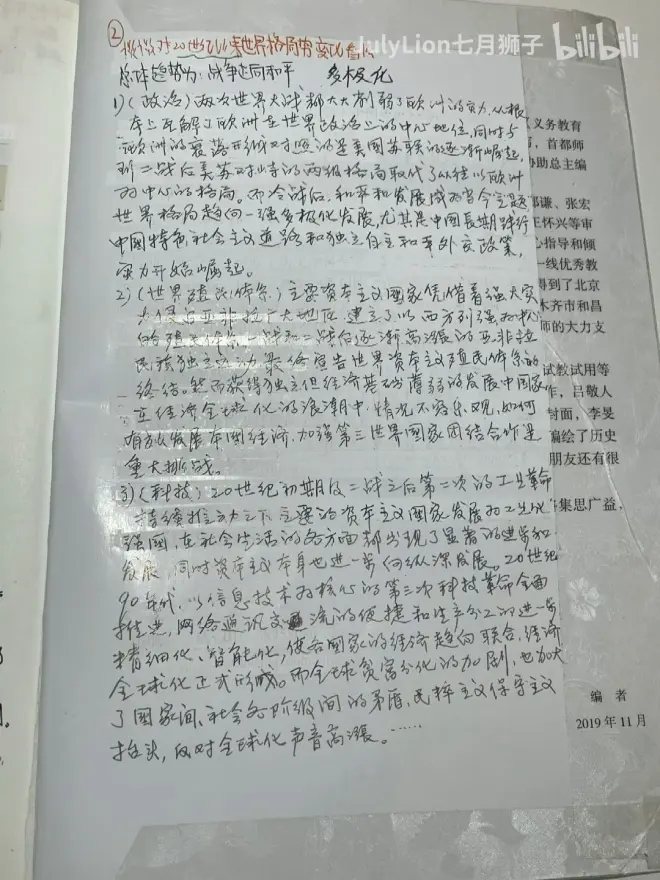 JulyLion七月狮子 bilibili
② 概述对20世纪以来世界格局的变化看法
总体趋势为：战争走向和平 多极化
1)（政治）两次世界大战都大大削弱了欧洲的实力，从根
本上瓦解了欧洲在世界政治上的中心地位，同时与
欧洲的衰落形成对照的是美国苏联的逐渐崛起，
到二战后美苏对峙的两极格局取代了以往以欧洲
为中心的格局。而冷战后，和平和发展成为当今主题
世界格局趋向一强多极化发展，尤其是中国長期践行
中国特色社会主义道路和独立自主和平外交政策，
实力开始崛起。
2)（世界殖民体系）主要资本主义国家凭借着强大实
力侵占亚非拉广大地区，建立了以西方列强为中心
的殖民体系，一战和二战后逐渐高漲的亚非拉
民族独立运动最终宣告世界资本主义殖民体系的
终结。然而获得独立但经济基础薄弱的发展中国家
在经济全球化的浪潮中，情况不容乐观，如何
有效发展本国经济，加强第三世界国家团结合作是
重大挑战。
3)（科技）20世纪初期及二战之后第二次的工业革命
持续推动之下主要的资本主义国家发展为工业化
强国，在社会生活的各方面都出现了显著的进步和
发展，同时资本主义本身也进一步向纵深发展。20世纪
90年代，以信息技术为核心的第三次科技革命全面
推进，网络通讯交流的便捷和生产分工的进一步
精细化、智能化，使各国家的经济趋向联合，经济
全球化正式形成。而全球贫富分化的加剧，也加大
了国家间、社会各阶级间的矛盾，民粹主义保守主义
抬头，反对全球化声音高漲。……
义务教育
，首都师
协助总主编
郭谦、张宏
王怀兴等审
心指导和倾
一线优秀教
得到了北京
木齐市和昌
师的大力支
试教试用等
作，吕敬人
封面，李旻
编绘了历史
朋友还有很
集思广益，
编 者
2019年11月